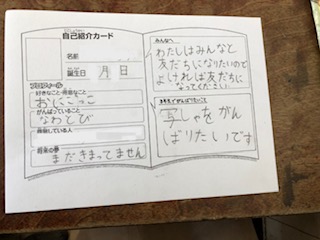 自己紹介カード
名前
誕生日 月 日
プロフィール
好きなこと・得意なこと
おにごっこ
がんばっていること
なわとび
尊敬している人
将来の夢
まだきまってません
みんなへ
わたしはみんなと
友だちになりたいので
よければ友だちに
なってください
がんばりたいこと
写しゃをがん
ばりたいです